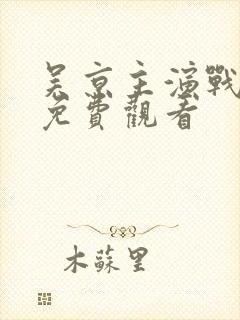 吴京主演戰
免費觀看
木蘇里